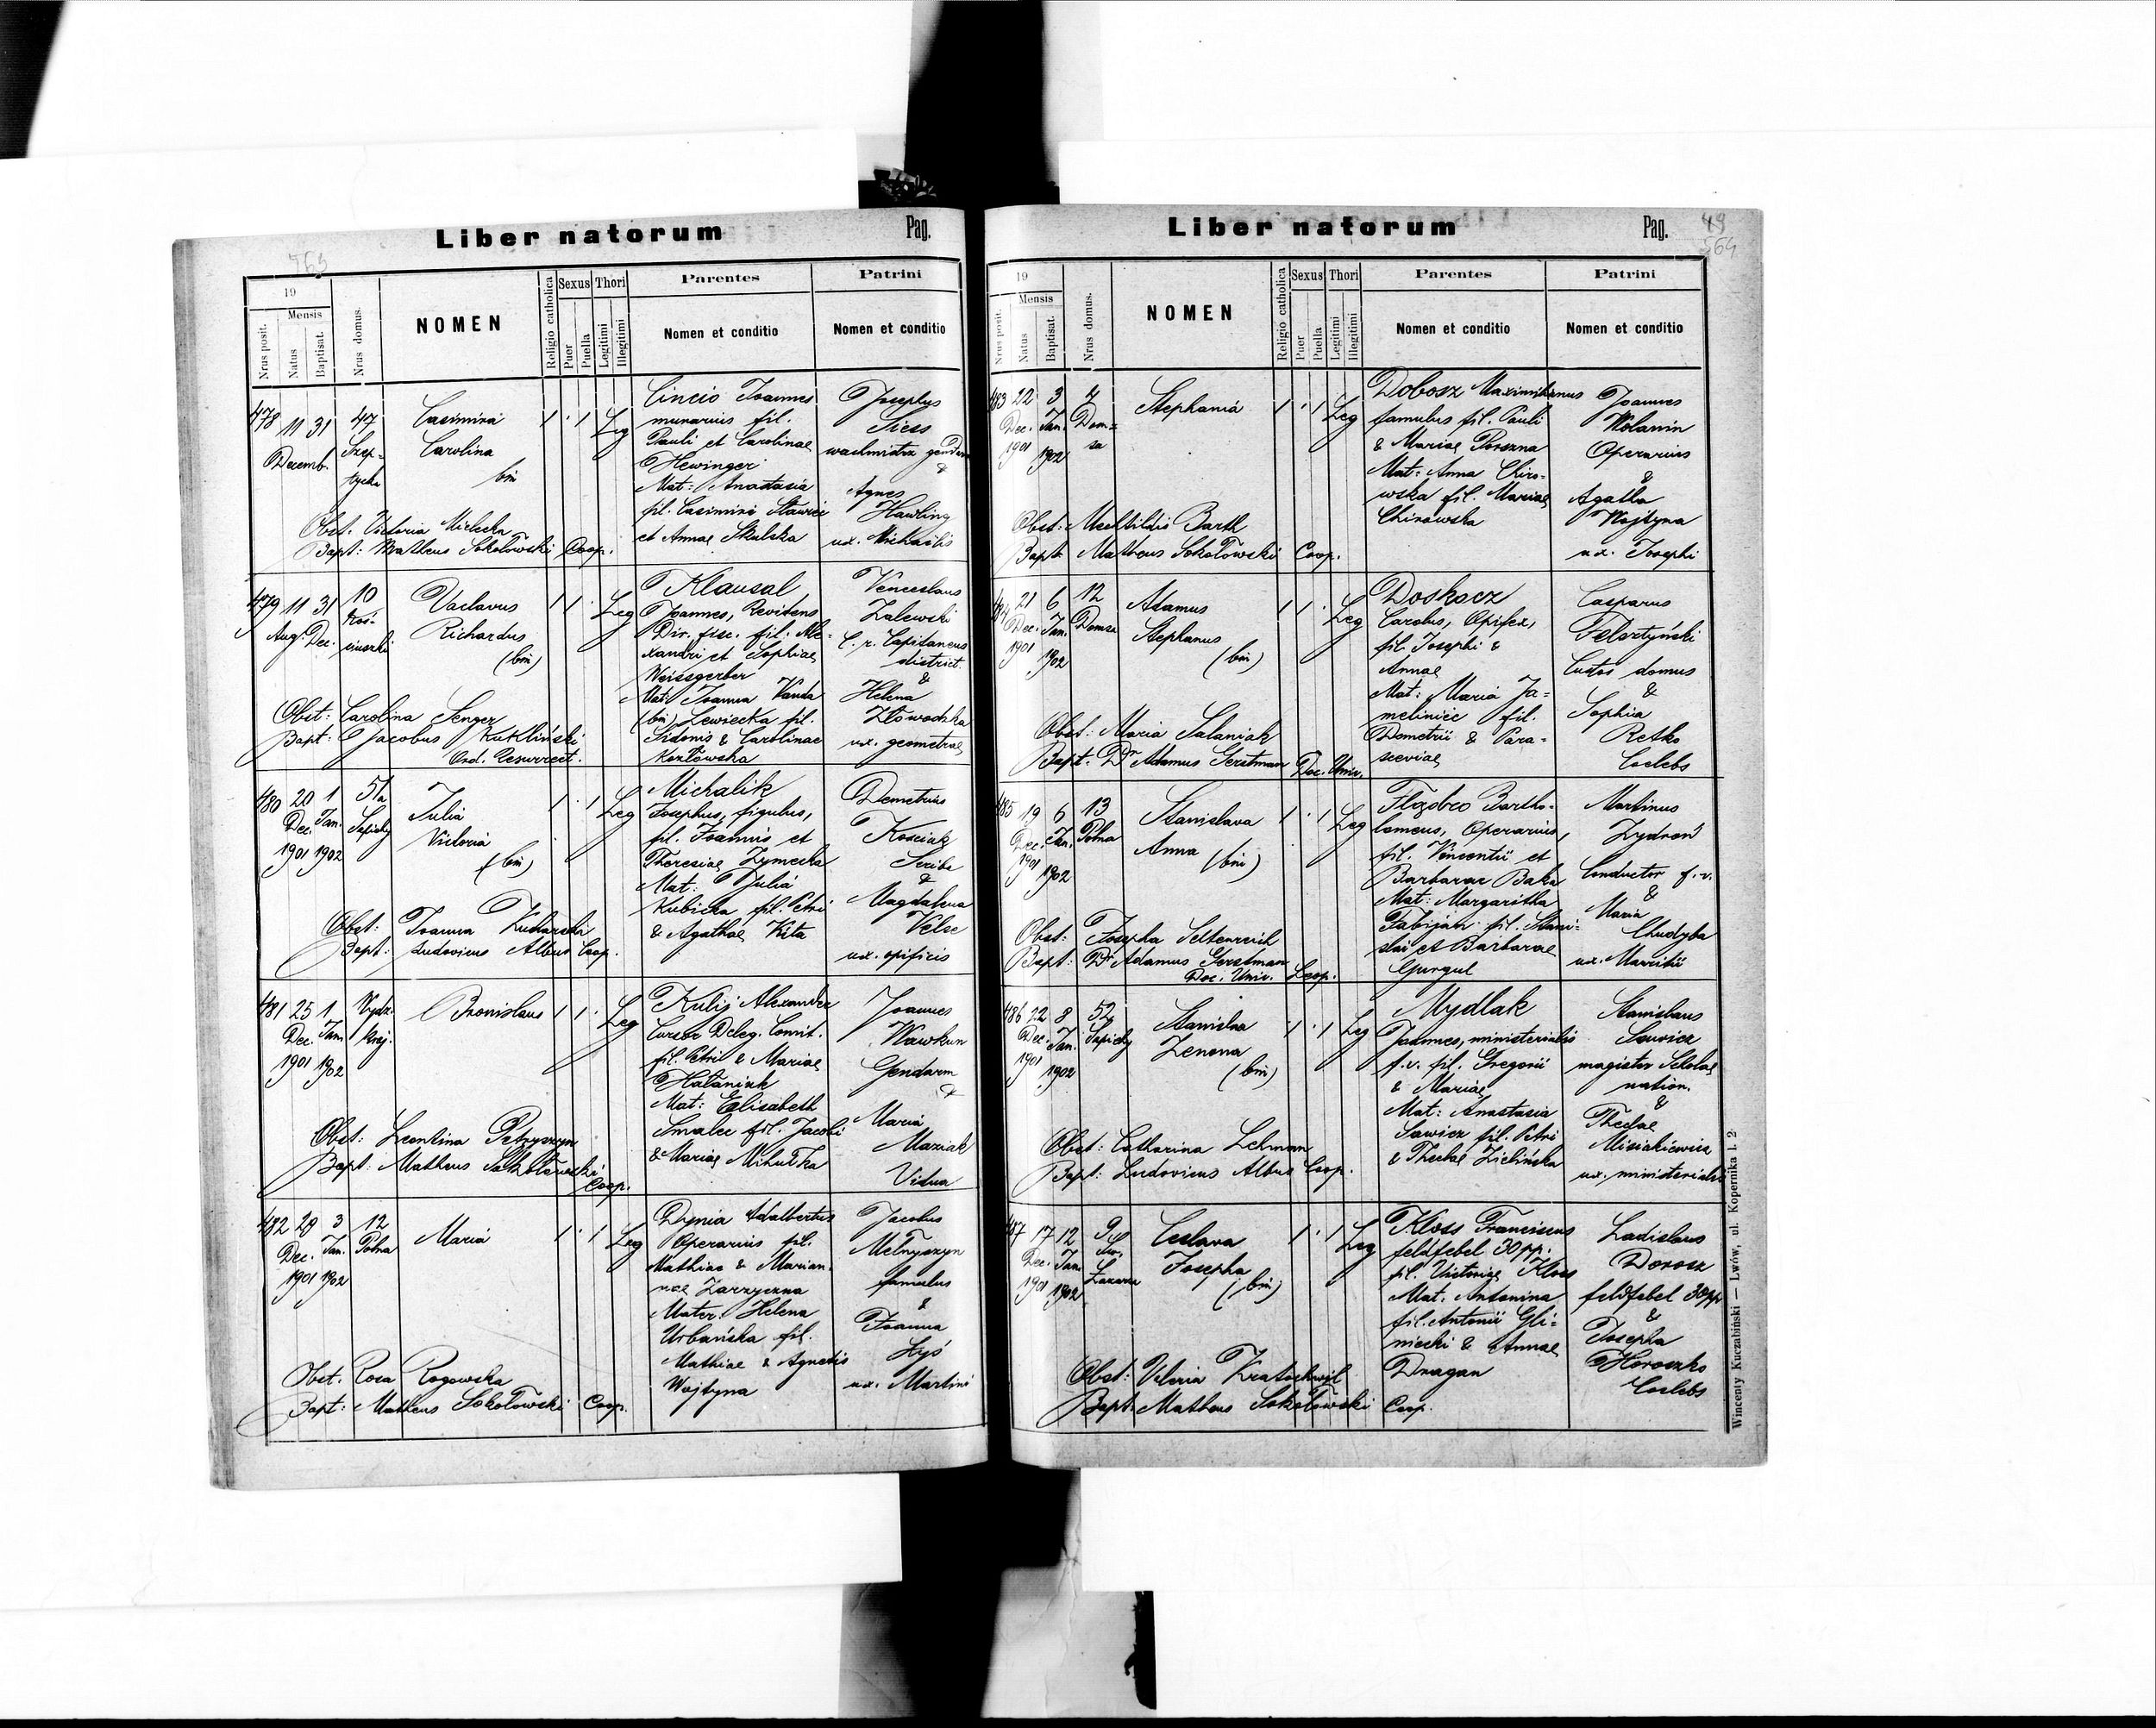 Liber natorum
Pag.
19
Mensis
Nrus posit.
Natus
Baptisat.
Nrus domus.
NOMEN
Religio catholica
Sexus
Puer
Puella
Thori
Legitimi
Illegitimi
Parentes
Nomen et conditio
Patrini
Nomen et conditio
478 11 31 47
Decemb.
Szep-
tycka
Casimira
Carolina
bin
1 · 1 Leg
Cincio Joannes
murarius fil.
Pauli et Carolinae
Hewinger
Mat: Anastasia
fil. Casimiri Stawicz
et Annae Skulska
Josephus
Siess
wachmistrz gendarm
&
Agnes
Hawling
ux. Michaëlis
Obst. Victoria Mielecka
Bapt: Mattheus Sokołowski Coop.
479 11 31 10
Aug. Dec.
Koś-
ciuszki
Vaclavus
Richardus
(bin)
1 1 · Leg
Klausal
Joannes, Revidens
Dir. fisc. fil. Ale-
xandri et Sophiae
Weissgerber
Mat: Joanna Vanda
(bin) Lewicka fil.
Sidonis & Carolinae
Kozłowska
Venceslaus
Zalewski
C. r. Capitaneus
district.
&
Helena
Zlowodzka
ux. geometrae
Obst: Carolina Senger
Bapt: Jacobus Kukliński
Ord. Resurrect.
480 20 1 51a
Dec. Jan. Sapiehy
1901 1902
Julia
Victoria
(bin)
1 · 1 Leg
Michalik
Josephus, figulus,
fil. Joannis et
Theresiae Zymecka
Mat: Julia
Kubicka fil. Petri
& Agathae Kita
Demetrius
Kosciak
Scriba
&
Magdalena
Velse
ux. opificis
Obst: Joanna Kucharska
Bapt: Ludovicus Albus Coop.
481 25 1 Wydz.
Dec. Jan. Kraj.
1901 1902
Bronislaus
1 1 · Leg
Kulij Alexander
Cursor Deleg. Comit.
fil. Petri & Mariae
Hałaniak
Mat: Elisabeth
Smalec fil. Jacobi
& Mariae Mihułka
Joannes
Wawkun
Gendarm
&
Maria
Maziak
Vidua
Obst: Leontina Petryszyn
Bapt: Mattheus Sokołowski
Coop.
482 29 3 12
Dec. Jan. Polna
1901 1902
Maria
1 · 1 Leg
Dynia Adalbertus
Operarius fil.
Mathiae & Marian-
nae Zarzyczna
Mater. Helena
Urbańska fil.
Mathiae & Agnetis
Wojtyna
Jacobus
Melnyszyn
famulus
&
Joanna
Łyś
ux. Martini
Obst. Rosa Rogowska
Bapt: Mattheus Sokołowski Coop.
Liber natorum
Pag.
49
564
19
Mensis
Nrus posit.
Natus
Baptisat.
Nrus domus.
NOMEN
Religio catholica
Sexus
Puer
Puella
Thori
Legitimi
Illegitimi
Parentes
Nomen et conditio
Patrini
Nomen et conditio
483 22 3 4
Dec. Jan. Dom-
sa
1901 1902
Stephania
1 · 1 Leg
Dobosz Maximilianus
famulus fil. Pauli
& Mariae Porszna
Mat: Anna Chiro-
wska fil. Mariae
Chirowska
Joannes
Wolanin
Operarius
&
Agatha
Wojtyna
ux. Josephi
Obst: Mechtildis Barth
Bapt: Mattheus Sokołowski Coop.
484 21 6 12
Dec. Jan. Domsa
1901 1902
Adamus
Stephanus
(bin)
1 1 · Leg
Doskocz
Carolus, Opifex,
fil. Josephi &
Annae
Mat: Maria Ja-
meliniec fil.
Demetrii & Para-
sceviae
Casparus
Felsztyński
Custos domus
&
Sophia
Retko
Coelebs
Obst: Maria Salaniak
Bapt. Dr Adamus Gerstman Doc. Univ.
485 19 6 13
Dec. Jan. Polna
1901 1902
Stanislava
Anna (bin)
1 · 1 Leg
Bartho-
lomeus, Operarius,
fil. Vincentii et
Barbarae Baka
Mat: Margaritha
Fabijan fil. Stani-
slai et Barbarae
Gurgul
Martinus
Zydroń
Conductor f. v.
&
Maria
Chudyba
ux. Mauritii
Obst: Josepha Seltenreich
Bapt: Dr Adamus Gerstman
Doc. Univ. Leop.
486 22 8 52
Dec. Jan. Sapiehy
1901 1902
Stanisłaa
Zenona
(bin)
1 · 1 Leg
Mydlak
Joannes, ministerialis
f. v. fil. Gregorii
& Mariae
Mat: Anastasia
Sawicz fil. Petri
& Theclae Zielińska
Stanislaus
Sawicz
magister Scholae
nation.
&
Theclae
Misiakiewicz
ux. ministerialis
Obst: Catharina Lehman
Bapt: Ludovicus Albus Coop.
487 17 12
Dec. Jan. Łazarza
1901 1902
Ceslava
Josepha
(bin)
1 · 1 Leg
Kloss Franciscus
feldfebel 30 pp.
fil. Victoriae Kloss
Mat: Antonina
fil. Antonii Gli-
niecki & Annae
Dragan
Ladislaus
Dorosz
feldfebel 30 pp
&
Josepha
Horoszko
Coelebs
Obst: Valeria Kratochwil
Bapt: Mattheus Sokołowski Coop.
Wincenty Kuczabiński — Lwów, ul. Kopernika l. 2